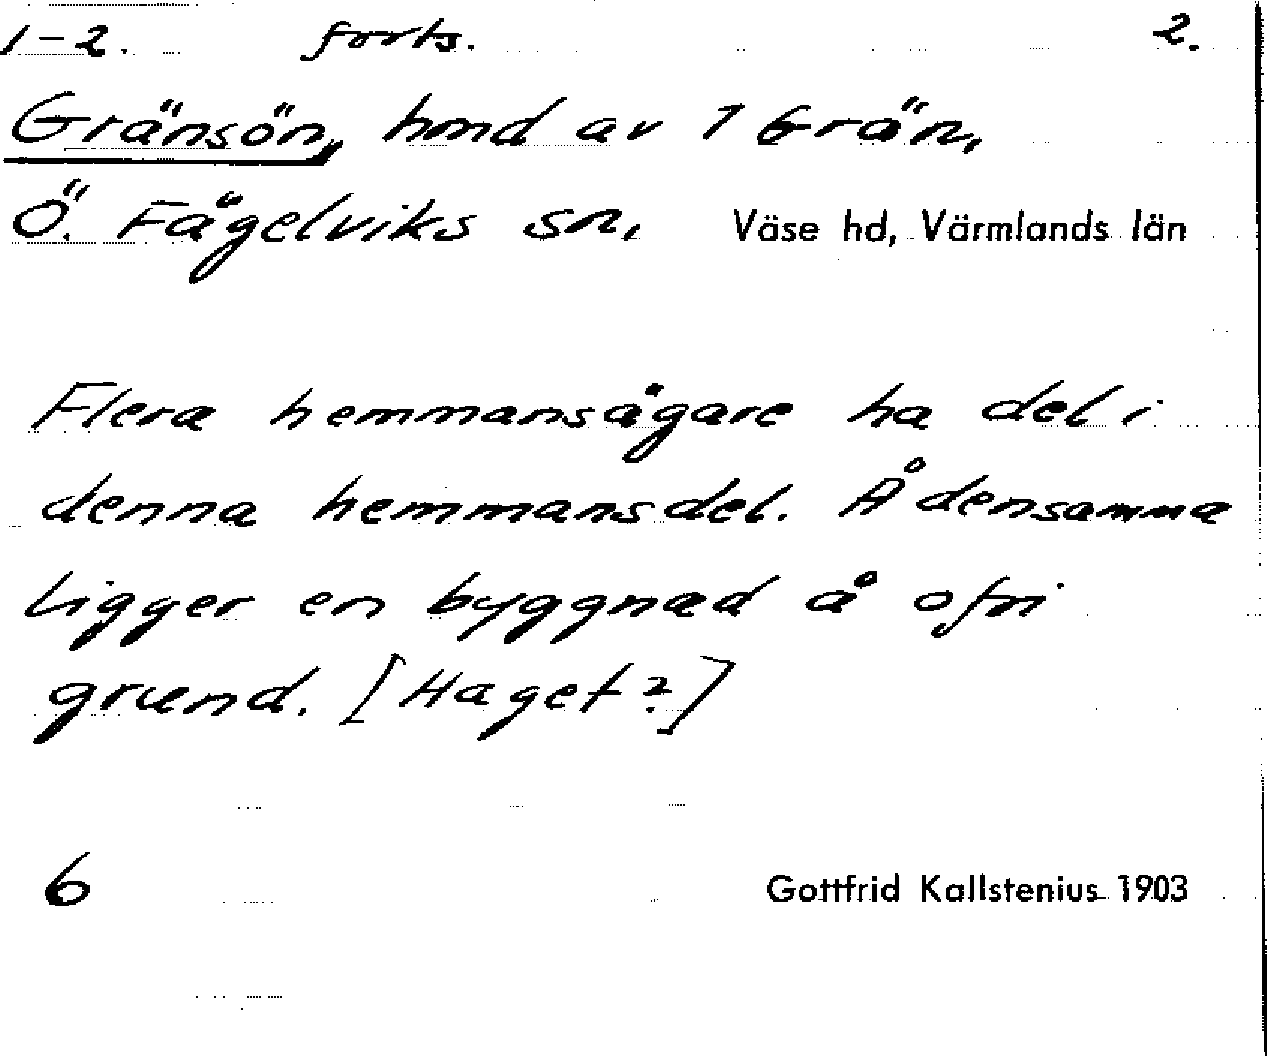 1-2. forts. 2.
Gränsön, hmd av 1 Grän,
Ö. Fågelviks sn, Väse hd, Värmlands län
Flera hemmansägare ha del i
denna hemmansdel. Å densamma
ligger en byggnad å ofri
grund. [Haget?]
6 Gottfrid Kallstenius 1903